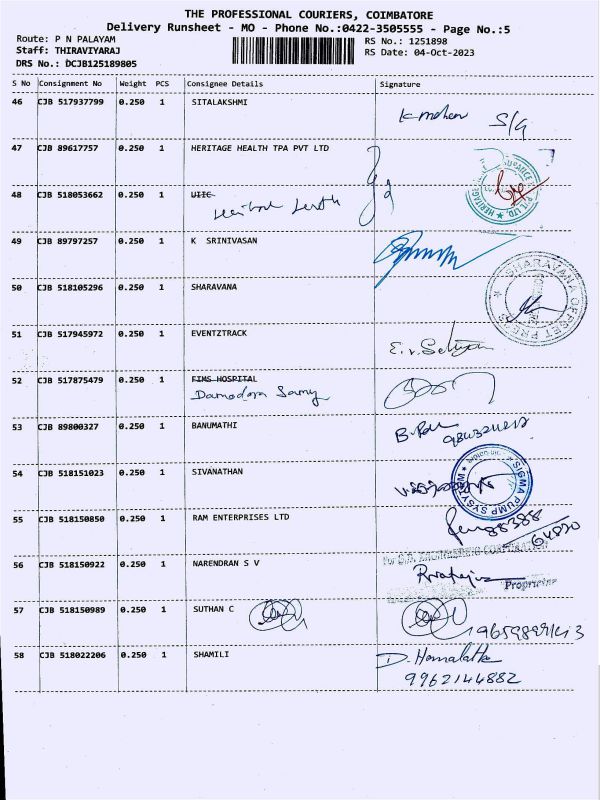 THE PROFESSIONAL COURIERS, COIMBATORE
Delivery Runsheet - MO - Phone No.:0422-3505555 - Page No.:5
Route: P N PALAYAM
RS No.: 1251898
Staff: THIRAVIYARAJ
RS Date: 04-Oct-2023
DRS No.: DCJB125189805
S No Consignment No Weight PCS Consignee Details Signature
46 CJB 517937799 0.250 1 SITALAKSHMI K-mohan S/G
47 CJB 89617757 0.250 1 HERITAGE HEALTH TPA PVT LTD
48 CJB 518053662 0.250 1 UIIC
49 CJB 89797257 0.250 1 K SRINIVASAN
50 CJB 518105296 0.250 1 SHARAVANA
SHARAVANA OFFSET PRESS
51 CJB 517945972 0.250 1 EVENTZTRACK
52 CJB 517875479 0.250 1 FIMS HOSPITAL
Damodara Samy
53 CJB 89800327 0.250 1 BANUMATHI
54 CJB 518151023 0.250 1 SIVANATHAN
SIGMA PUMP SYSYTEM
55 CJB 518150850 0.250 1 RAM ENTERPRISES LTD
64820
56 CJB 518150922 0.250 1 NARENDRAN S V
Proprietor
57 CJB 518150989 0.250 1 SUTHAN C
58 CJB 518022206 0.250 1 SHAMILI D. Hemalatha
9962144882